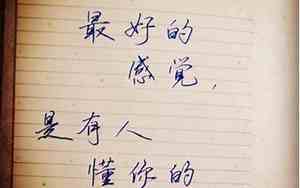 最好的
感觉，
是有人
懂你的